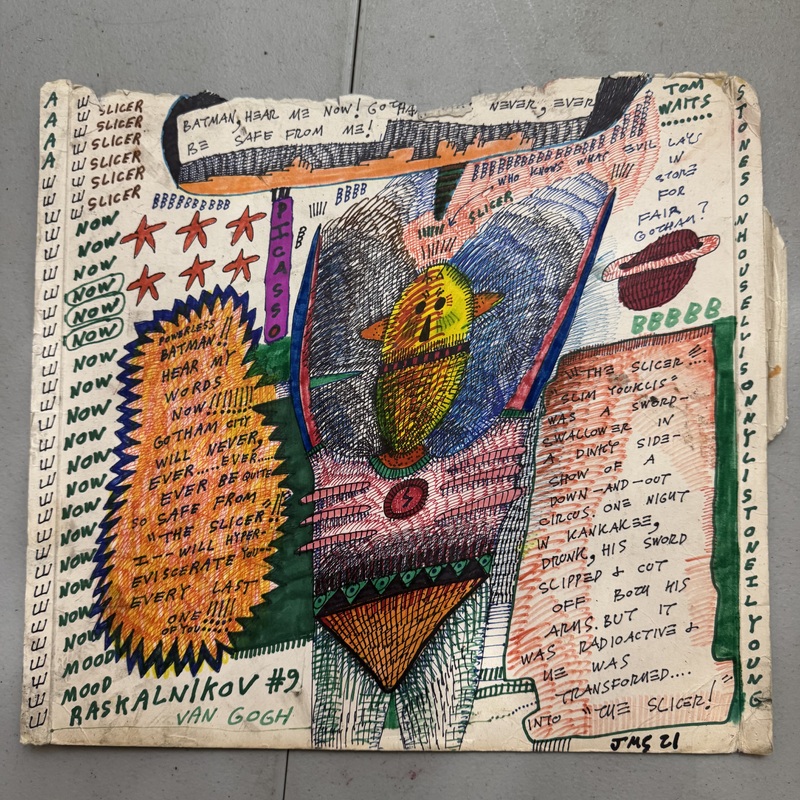 A
A
A
A
SLICER
SLICER
SLICER
SLICER
SLICER
SLICER
NOW
NOW
NOW
NOW
NOW
NOW
NOW
NOW
NOW
NOW
NOW
NOW
NOW
NOW
NOW
NOW
MOOD
MOOD
BATMAN, HEAR ME NOW! GOTHA NEVER, EVER
BE SAFE FROM ME!
TOM
WAITS
BBBBBBBBBB
BBBB
BBBBBBBBBBBBBB
WHO KNOWS WHAT EVIL LAYS
IN
STORE
FOR
FAIR
GOTHAM?
SLICER
PICASSO
B
B
BBBBB
POWERLESS
BATMAN!!
HEAR MY
WORDS
NOW!!!!!!!
GOTHAM CITY
WILL NEVER,
EVER.....EVER....
EVER BE QUITE
SO SAFE FROM
"THE SLICER"!!
I--- WILL HYPER-
EVISCERATE YOU
EVERY LAST
ONE!!!!!
OF YOU......
"THE SLICER"....
"SLIM YOUKLIS"
WAS A SWORD-
SWALLOWER IN
A DINKY SIDE-
SHOW OF A
DOWN-AND-OUT
CIRCUS. ONE NIGHT
IN KANKAKEE,
DRUNK, HIS SWORD
SLIPPED & CUT
OFF BOTH HIS
ARMS. BUT IT
WAS RADIOACTIVE &
HE WAS
TRANSFORMED....
INTO "THE SLICER!"
RASKALNIKOV #9
VAN GOGH
JMS 21
STONESONHOUSELVISONNYLISTONEILYOUNG